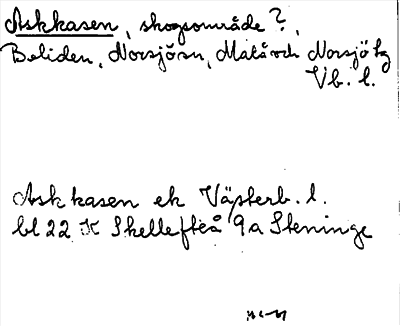 Askkasen, skogsområde?,
Beliden, Norsjösn, Malå och Norsjö tg
Vb. l.
Askkasen ek Västerb. l.
bl 22 K Skellefteå 9a Steninge